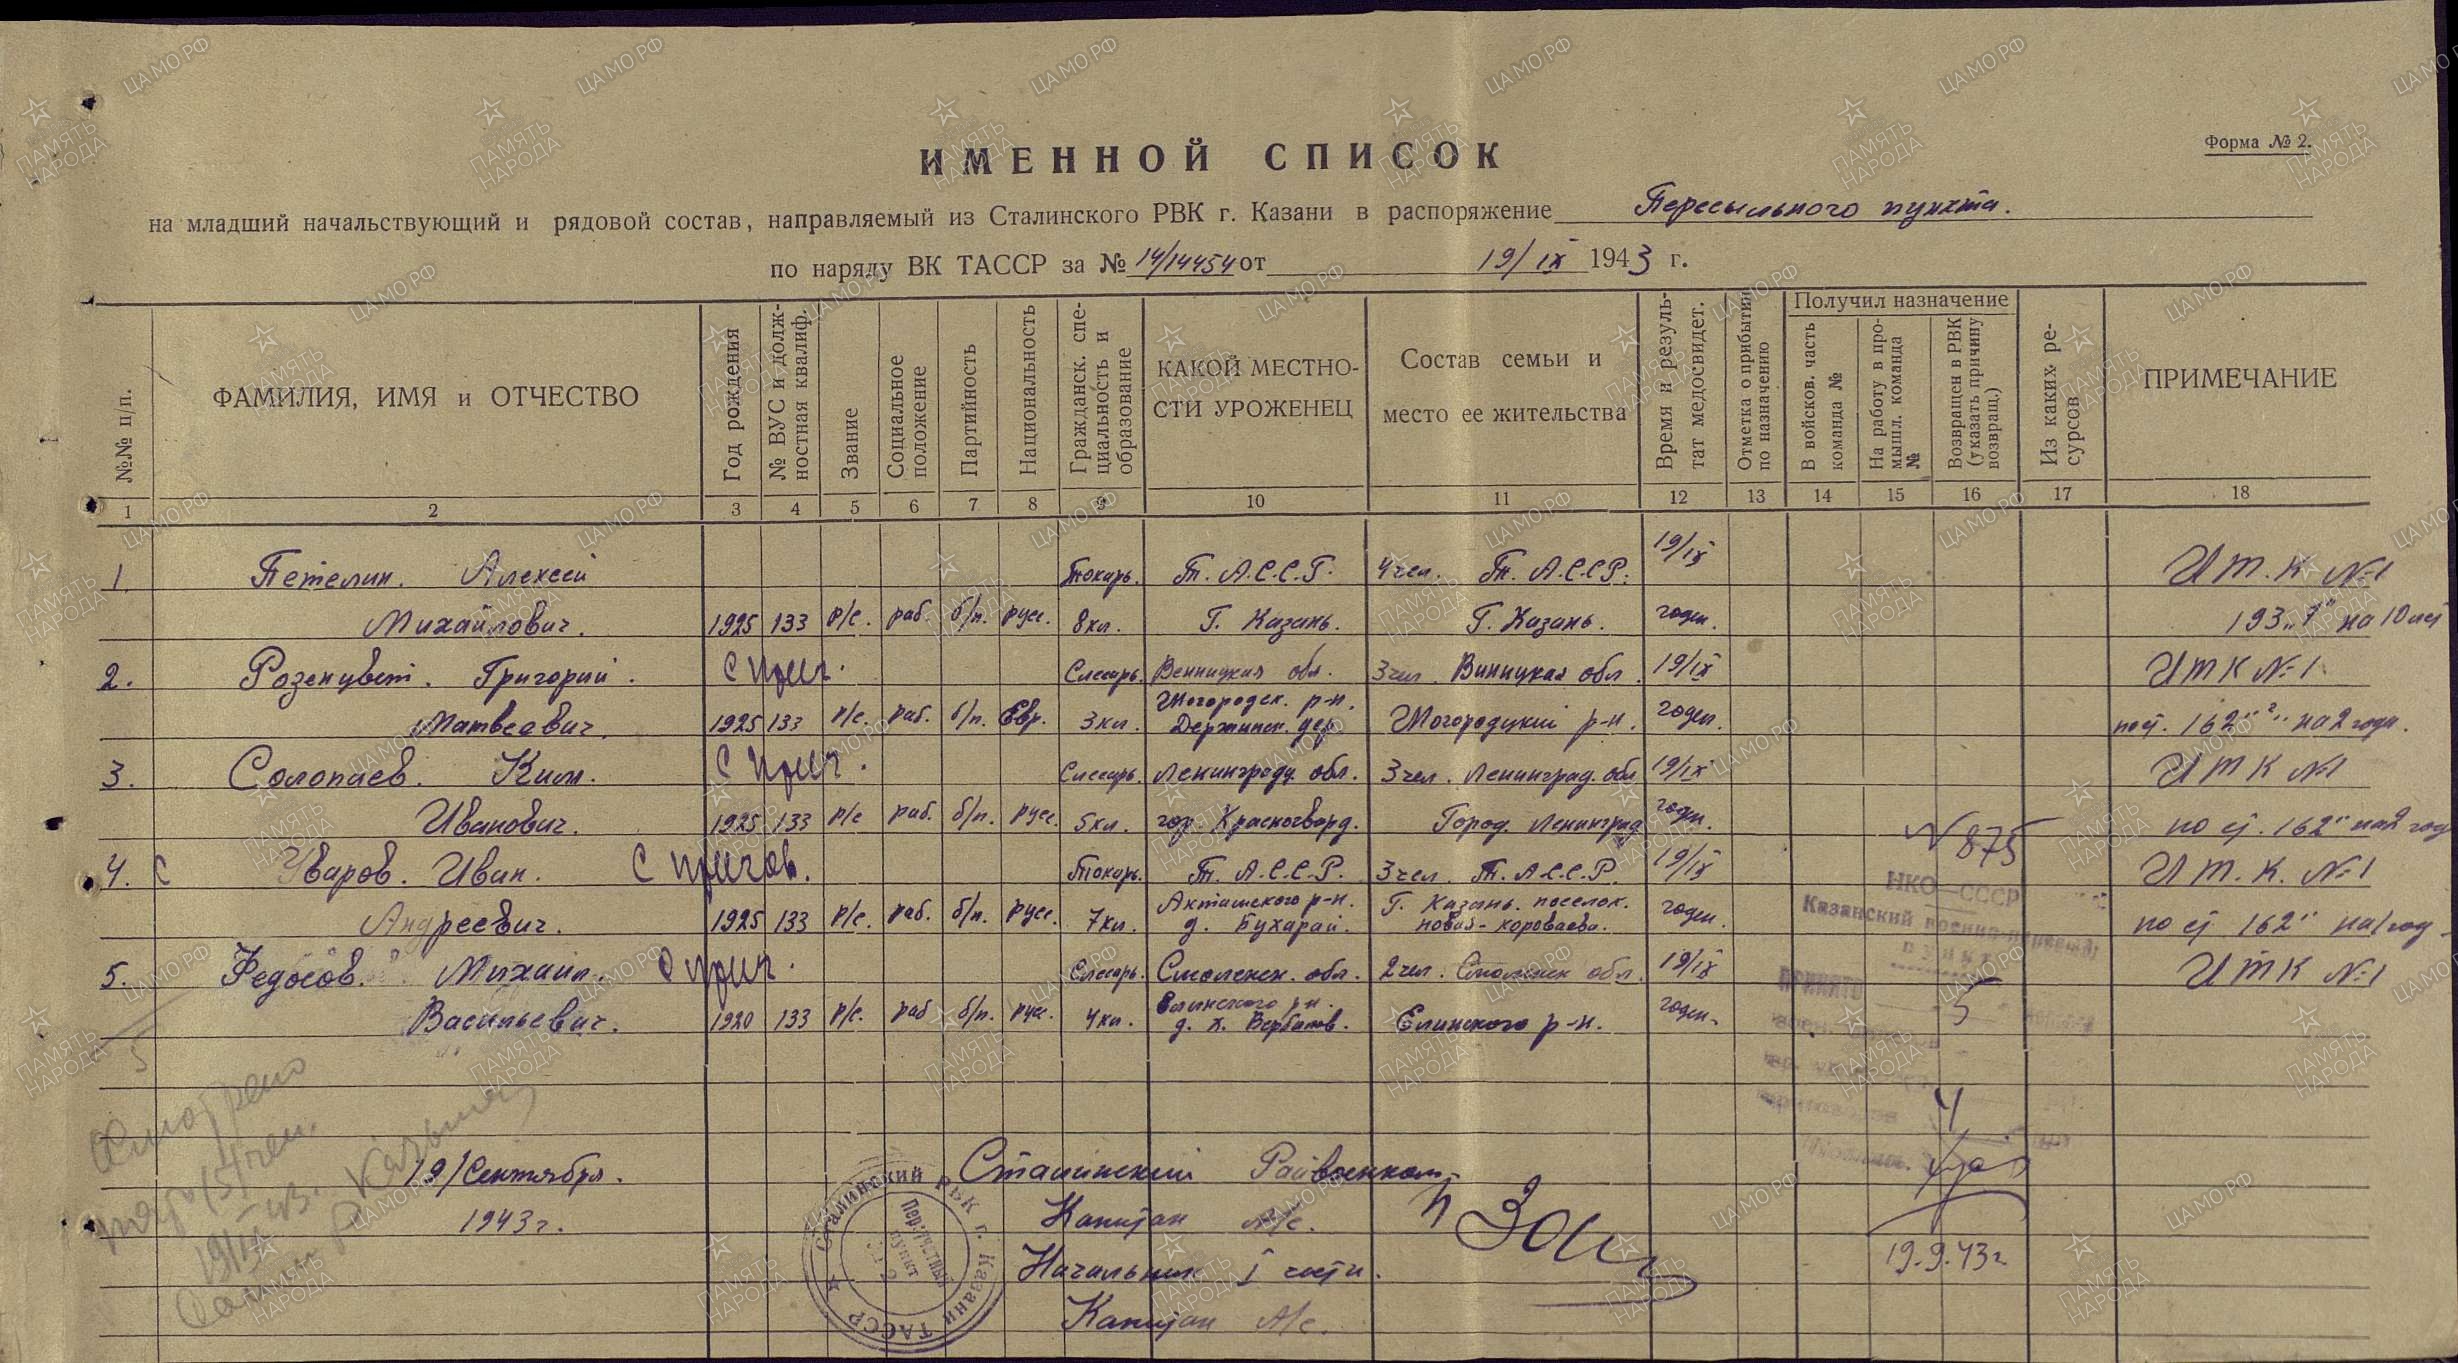 Форма № 2.
ИМЕННОЙ СПИСОК
на младший начальствующий и рядовой состав, направляемый из Сталинского РВК г. Казани в распоряжение Пересыльного пункта.
по наряду ВК ТАССР за № 14/14454 от 19/IX 1943 г.
№№ п/п. ФАМИЛИЯ, ИМЯ и ОТЧЕСТВО Год рождения № ВУС и долж-ностная квалиф. Звание Социальное положение Партийность Национальность Гражданск. спе-циальность и образование КАКОЙ МЕСТНО-СТИ УРОЖЕНЕЦ Состав семьи и место ее жительства Время и резуль-тат медосвидет. Отметка о прибытии по назначению Получил назначение В войсков. часть команда № На работу в про-мышл. команда № Возвращен в РВК (указать причину возвращ.) Из каких ре-сурсов ПРИМЕЧАНИЕ
1 2 3 4 5 6 7 8 9 10 11 12 13 14 15 16 17 18
1. Петелин. Алексей Токарь. Т. А.С.С.Р. 4 чел. Т. А.С.С.Р. 19/IX И Т. К №1
Михайлович. 1925 133 р/с. раб. б/п. русс. 8 кл. Г. Казань. Г. Казань. годен. 193 на 10 лет
2. Розенцвет. Григорий. С приг. Слесарь. Венницкая обл. 3 чел. Винницкая обл. 19/IX И Т К №1
Матвеевич. 1925 133 р/с. раб. б/п. Евр. 3 кл. р-н. дер. р-н. годен. 162 на 2 года.
3. Солопаев. Ким. С приг. Слесарь. Ленинград. обл. 3 чел. Ленинград. обл 19/IX И Т К №1
Иванович. 1925 133 р/с раб. б/п. русс. 5 кл. гор. Красногвард. Город. Ленинград годен. по ст. 162" на 2 год
№ 875
4. С Уваров. Иван. С пригов. Токарь. Т. А.С.С.Р. 3 чел. Т. А.С.С.Р. 19/IX И Т. К. №1
Андреевич. 1925 133 р/с. раб. б/п. русс. 7 кл. Акташского р-н. д. Бухарай. Г. Казань. поселок. новая-короваева. годен. по ст 162" на 1 год.
НКО—СССР
Казанский военно-
пункт
5. Федосов. Михаил. С приг. Слесарь. Смоленск. обл. 2 чел. Смоленск обл. 19/IX И Т К №1
Васильевич. 1920 133 р/с. раб б/п. русс. 4 кл. р-н. Елинского р-н. годен.
5
5
4
Смотрено
(5) чел.
19/Сентября. Сталинский Райвоенком
1943 г. Капитан А/с.
Начальник I части.
Капитан А/с.
19.9.43г
Сталинский РВК г. Казани ТАССР
пункт
ПАМЯТЬ НАРОДА
ЦАМО.РФ